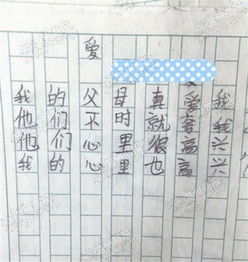 爱
我的父母真爱我
他们不时就套我
他们心里很高兴
我的心里也高兴